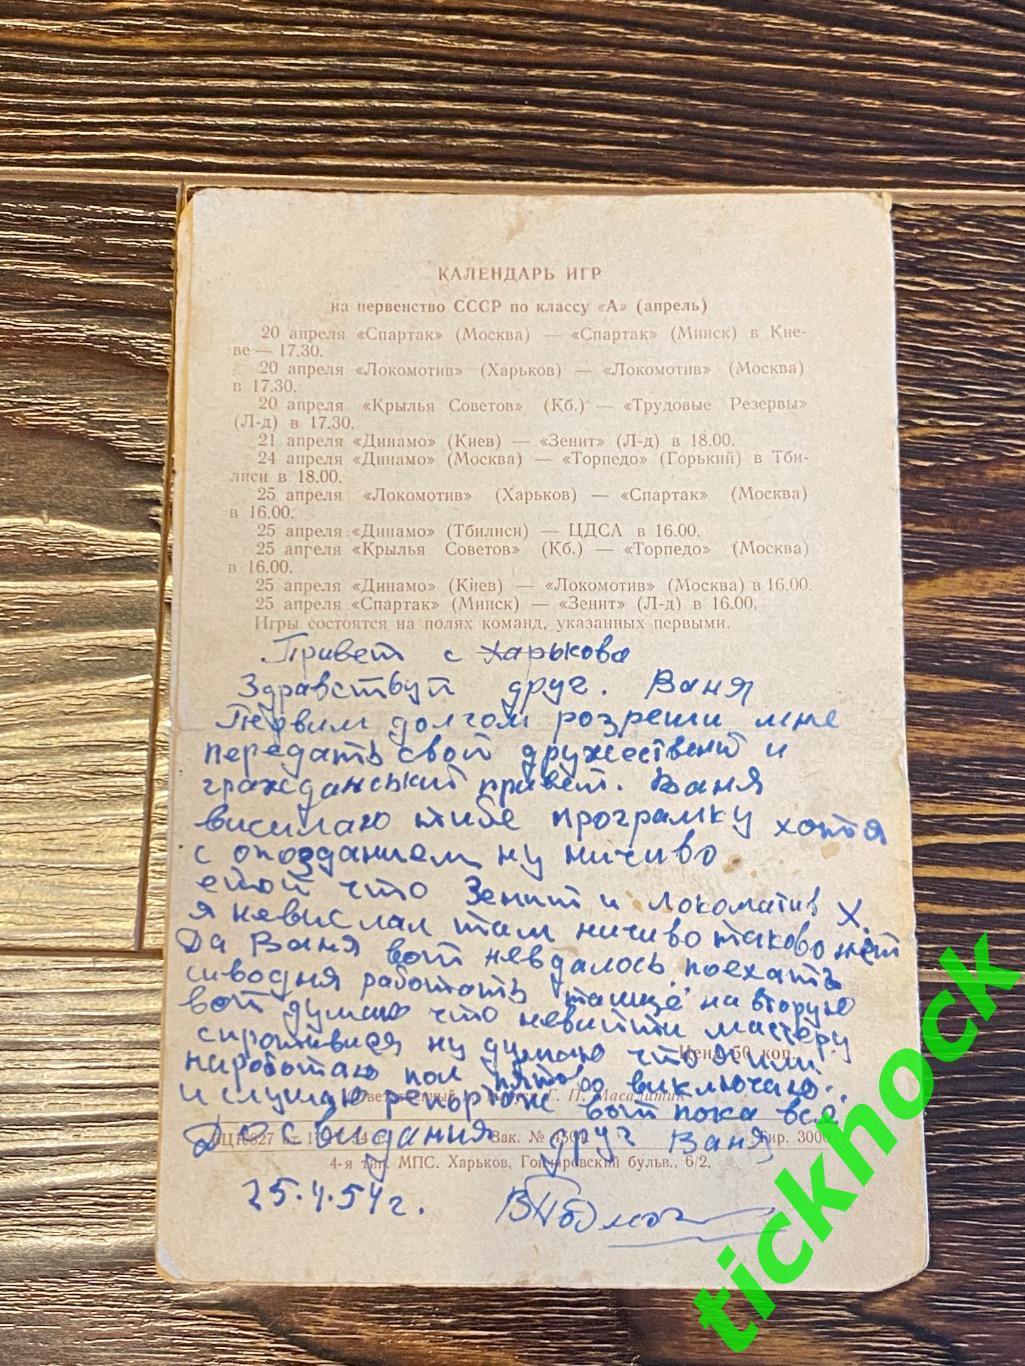 КАЛЕНДАРЬ ИГР
на первенство СССР по классу «А» (апрель)
20 апреля «Спартак» (Москва) — «Спартак» (Минск) в Кие-
ве — 17.30.
20 апреля «Локомотив» (Харьков) — «Локомотив» (Москва)
в 17.30.
20 апреля «Крылья Советов» (Кб.) — «Трудовые Резервы»
(Л-д) в 17.30.
21 апреля «Динамо» (Киев) — «Зенит» (Л-д) в 18.00.
24 апреля «Динамо» (Москва) — «Торпедо» (Горький) в Тби-
лиси в 18.00.
25 апреля «Локомотив» (Харьков) — «Спартак» (Москва)
в 16.00.
25 апреля «Динамо» (Тбилиси) — ЦДСА в 16.00.
25 апреля «Крылья Советов» (Кб.) — «Торпедо» (Москва)
в 16.00.
25 апреля «Динамо» (Киев) — «Локомотив» (Москва) в 16.00.
25 апреля «Спартак» (Минск) — «Зенит» (Л-д) в 16.00.
Игры состоятся на полях команд, указанных первыми.
Привет с Харькова
Здравствуй друг. Ваня
Первим долгом розреши мне
передать свой дружественй и
гражданський привет. Ваня
висилаю тибе програмку хотя
с опозданием ну ничиво
етой что Зенит и Локоматив Х.
я невислал там ничиво таково нет
Да Ваня вот невдалось поехать
сиводня работать на вторую
вот думаю что невийти мастеру
ну думаю что
пол пятово виключаю.
и слушаю репортож вот пока все
Цена 50 коп.
Г. П. Масалитин
До свидания друг Ваня
Зак. №
Тир. 3000
4-я тип. МПС. Харьков, Гончаровский бульв., 6/2.
25.4.54 г.
tickhock